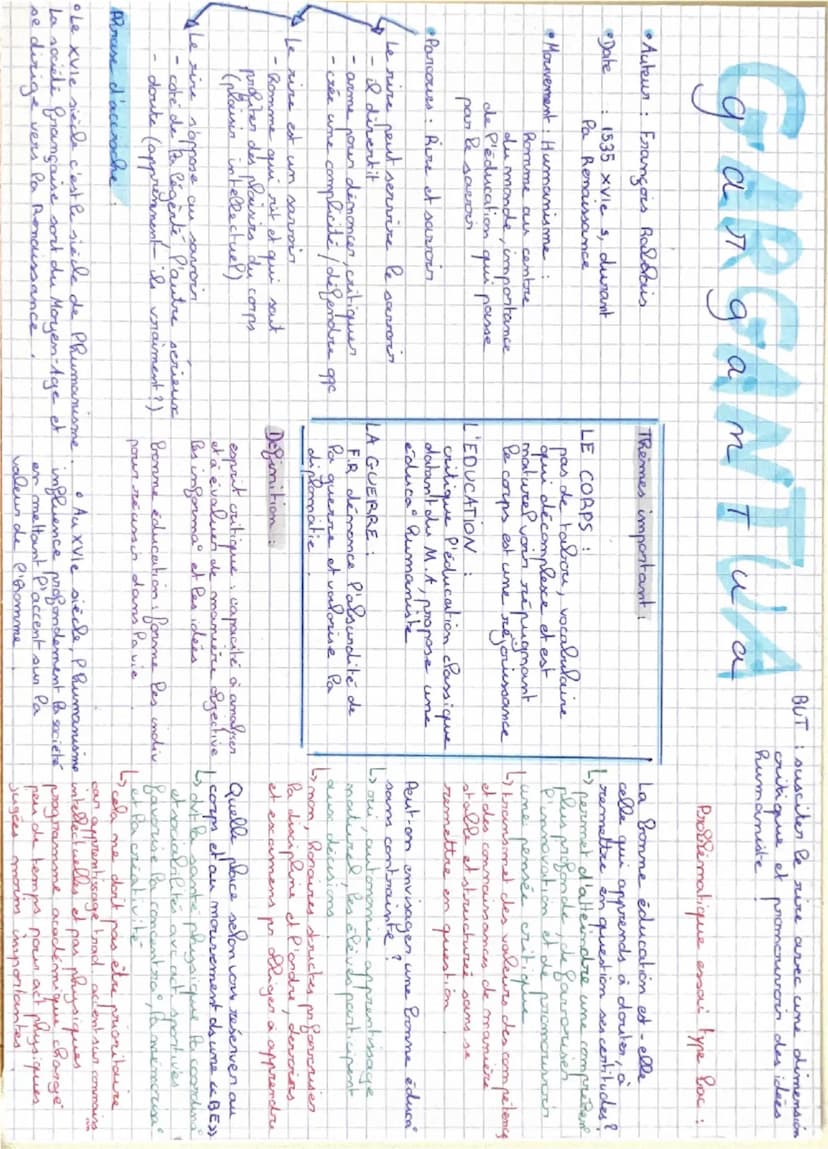 GARGANTUA
gargantua
BUT : susciter le rire avec une dimension
critique et promouvoir des idées
humaniste !
• Auteur : François Rabelais
• Date : 1535 XVIe s, durant
la Renaissance
• Mouvement : Humanisme :
homme au centre
du monde, importance
de l'éducation qui passe
par le savoir
• Parcours : Rire et savoir
Le rire peut servire le savoir
- il divertit
- arme pour dénoncer, critiquer
- crée une complicité / défendre qqc
Le rire est un savoir
- homme qui rit et qui sait
profiter des plaisirs du corps
(plaisir intellectuel)
Le rire s'oppose au savoir
- côté de la légèreté l'autre sérieux
- doute (apprennent-ils vraiment ?)
Phrase d'accroche :
• Le XVIe siècle c'est le siècle de l'humanisme.
La société française sort du Moyen-Age et
se dirige vers la Renaissance.
• Au XVIe siècle, l'humanisme
influence profondément la société
en mettant l'accent sur la
valeur de l'Homme
Thèmes important :
LE CORPS :
pas de tabou, vocabulaire
qui décomplexe et est
naturel voir répugnant
le corps est une réjouissance
L'EDUCATION :
critique l'éducation classique
datant du M.A, propose une
éduca° humaniste
LA GUERRE :
F.R dénonce l'absurdité de
la guerre et valorise la
diplomatie
Définition :
esprit critique : capacité à analyser
et à évaluer de manière objective
les informa° et les idées
bonne éducation : forme les indiv
pour réussir dans la vie
Problématique essai type bac :
La bonne éducation est-elle
celle qui apprends à douter, à
remettre en question ses certitudes ?
↳ permet d'atteindre une compréhen°
plus profonde, de favoriser
l'innovation et de promouvoir
une pensée critique
↳ transmet des valeurs, des compétences
et des connaissances de manière
stable et structuré sans se
remettre en question
Peut-on envisager une bonne éduca°
sans contrainte ?
↳ oui, autonomie apprentissage
naturel, les élèves participent
aux décisions
↳ non, horaires strictes pr favoriser
la discipline et l'ordre, devoirs
et examens pr obliger à apprendre
Quelle place selon vous réserver au
corps et au mouvement ds une « BE »
↳ dvlp santé physique, la coordina°
et sociabilité avc act sportives
favorise la concentra°, la mémorisa°
et la créativité
↳ cela ne doit pas être prioritaire
car apprentissage trad accent sur
intellectuelles et pas physiques
programme académique chargé
peu de temps pour act physiques
jugées moins importantes